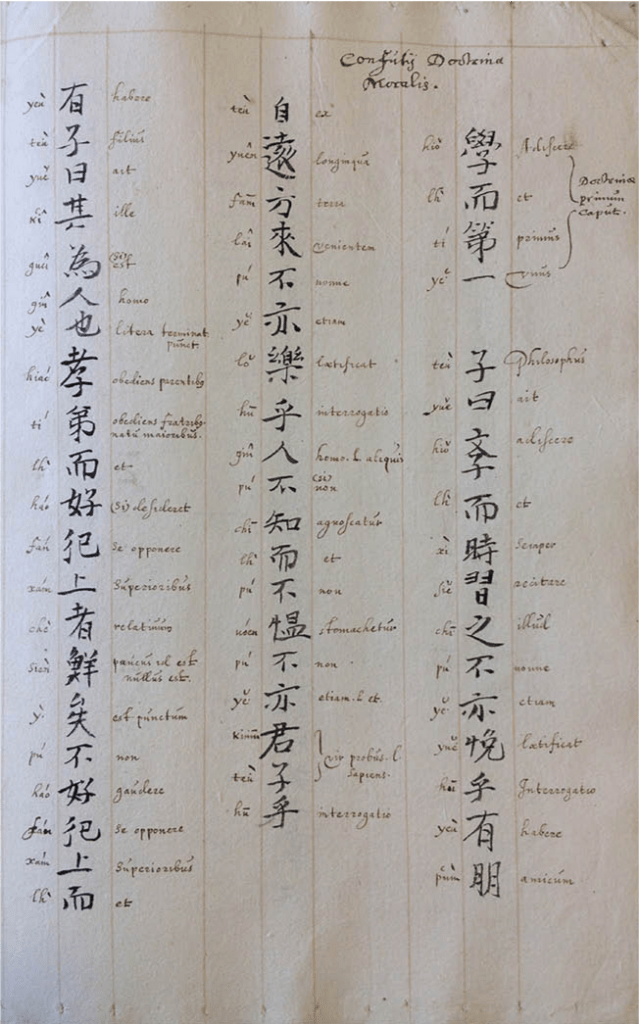 Confutij Doctrina
Moralis.
hiŏ 學 Adiscere
lh̑ 而 et
tí 第 primus
yĕ 一 Unus
Doctrinæ
primum
Caput.
tèu 子 Philosophus
yuĕ 曰 ait
hiŏ 斈 adiscere
lh̑ 而 et
xî 時 semper
siĕ 習 recitare
chī 之 illud
pú 不 nonne
yĕ 亦 etiam
yuĕ 悅 lætificat
hū 乎 Interrogatio
yeù 有 habere
pûm 朋 amicum
自 ex
yuên 遠 longinqua
fām 方 terra
lâi 來 venientem
pú 不 nonne
yĕ 亦 etiam
lŏ 樂 lætificat
hū 乎 interrogatio
gîn 人 homo. l. aliquis
pú 不 (si) non
chī 知 agnoscatur
lh̑ 而 et
pú 不 non
慍 stomachetur
pú 不 non
yĕ 亦 etiam. l. et.
kiūm 君
tèu 子
vir probus. l.
sapiens.
hū 乎 interrogatio
yeù 有 habere
tèu 子 filius
yuĕ 曰 ait
kî 其 ille
guêi 為 (si) est
gîn 人 homo
yè 也 litera terminat.
punct.
hiáo 孝 obediens parentibus
tí 弟 obediens fratribus
natu maioribus.
lh̑ 而 et
háo 好 (si) desideret
fán 犯 se opponere
xám 上 Superioribus
chè 者 relativum
sièn 鮮 paucus id est
nullus est.
ỳ 矣 est punctum
pú 不 non
háo 好 gaudere
fán 犯 se opponere
xám 上 Superioribus
lh̑ 而 et